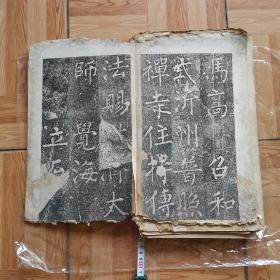 馮高 召和
式沂州普照
禪寺住持傳
法賜 大
師 覺海
立石